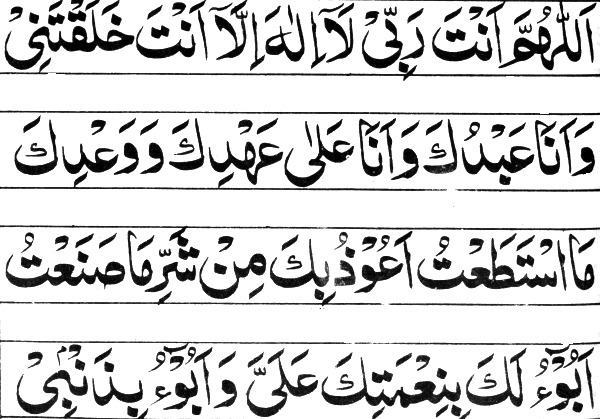 اَللّٰهُمَّ اَنْتَ رَبِّیْ لَاۤ اِلٰهَ اِلَّاۤ اَنْتَ خَلَقْتَنِیْ
وَاَنَا عَبْدُكَ وَاَنَا عَلٰی عَهْدِكَ وَوَعْدِكَ
مَا اسْتَطَعْتُ اَعُوْذُبِكَ مِنْ شَرِّ مَا صَنَعْتُ
اَبُوْٓءُ لَكَ بِنِعْمَتِكَ عَلَیَّ وَاَبُوْٓءُ بِذَنْۢبِیْ